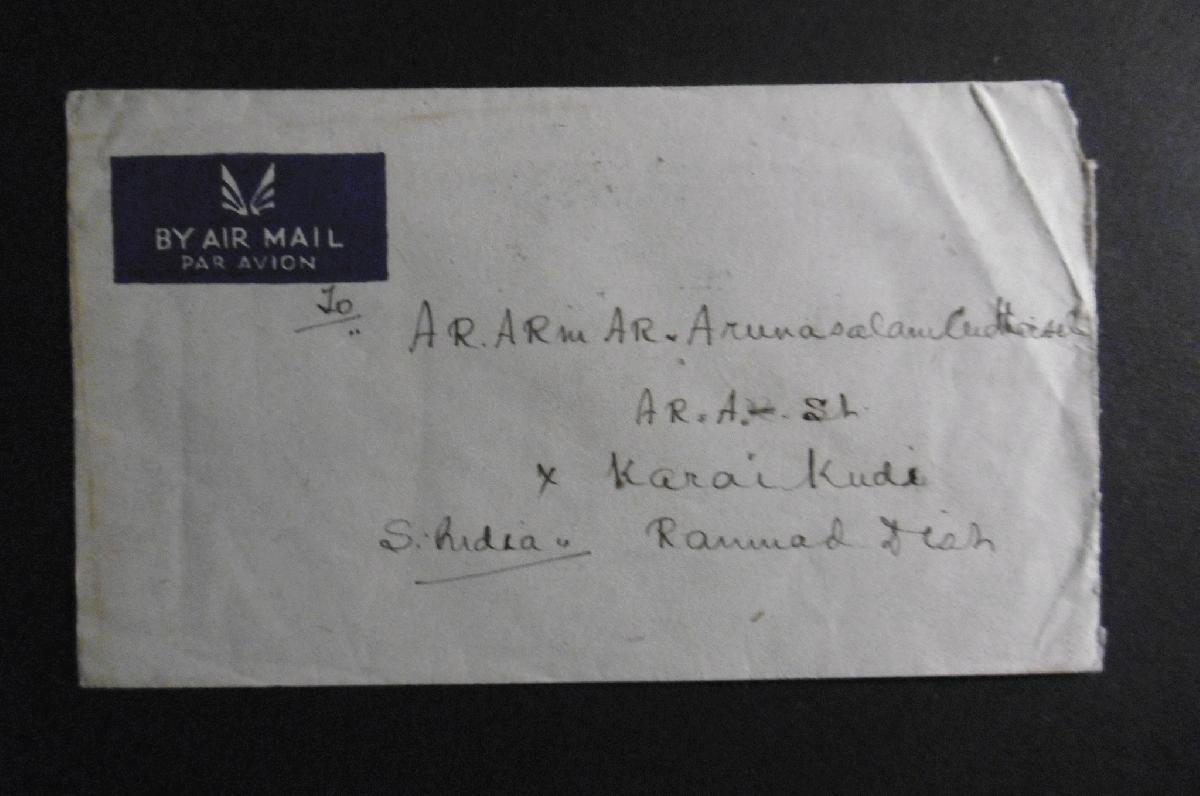 BY AIR MAIL
PAR AVION
To
AR. ARm AR. Arunasalam
AR. A. St
x Karai Kudi
S. India Ramnad Dist